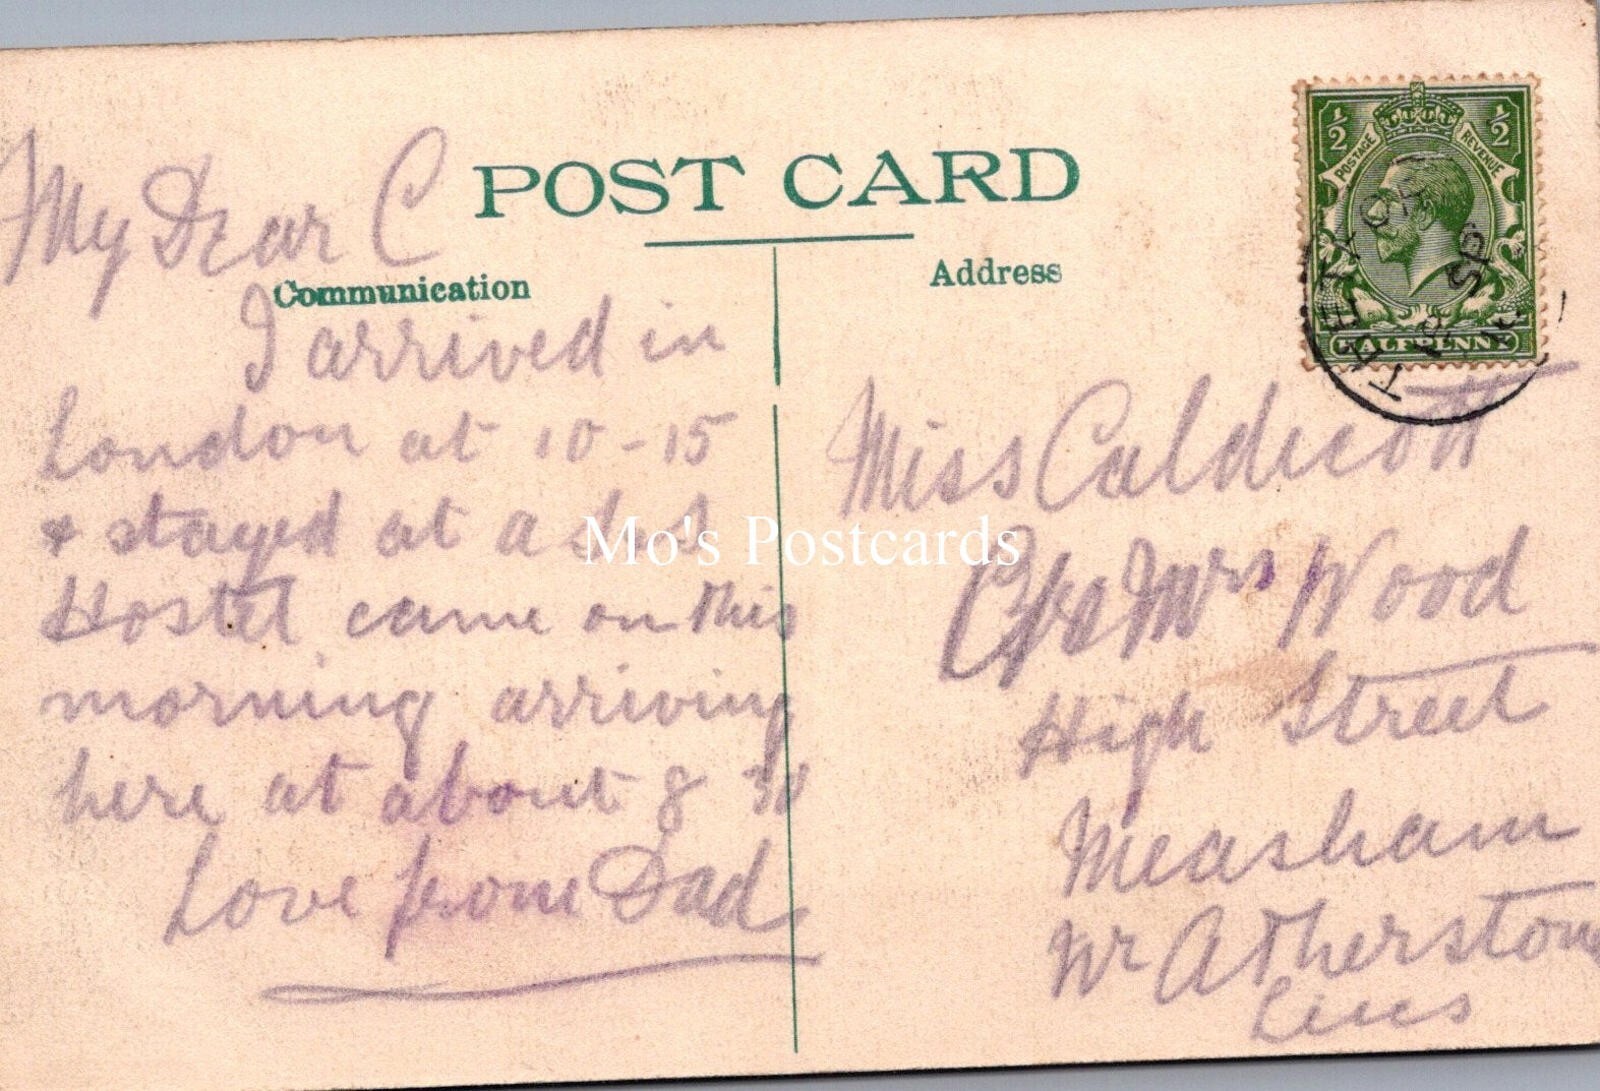 POST CARD
Communication
My Dear C
I arrived in
London at 10-15
& stayed at a S. A
Hostel came on this
morning arriving
here at about 8 30
Love from Dad
Address
Miss Caldicott
C/o Mrs Wood
High Street
Measham
Nr Atherstone
Leics
½ ½
POSTAGE REVENUE
HALFPENNY
18 SP
Mo's Postcards